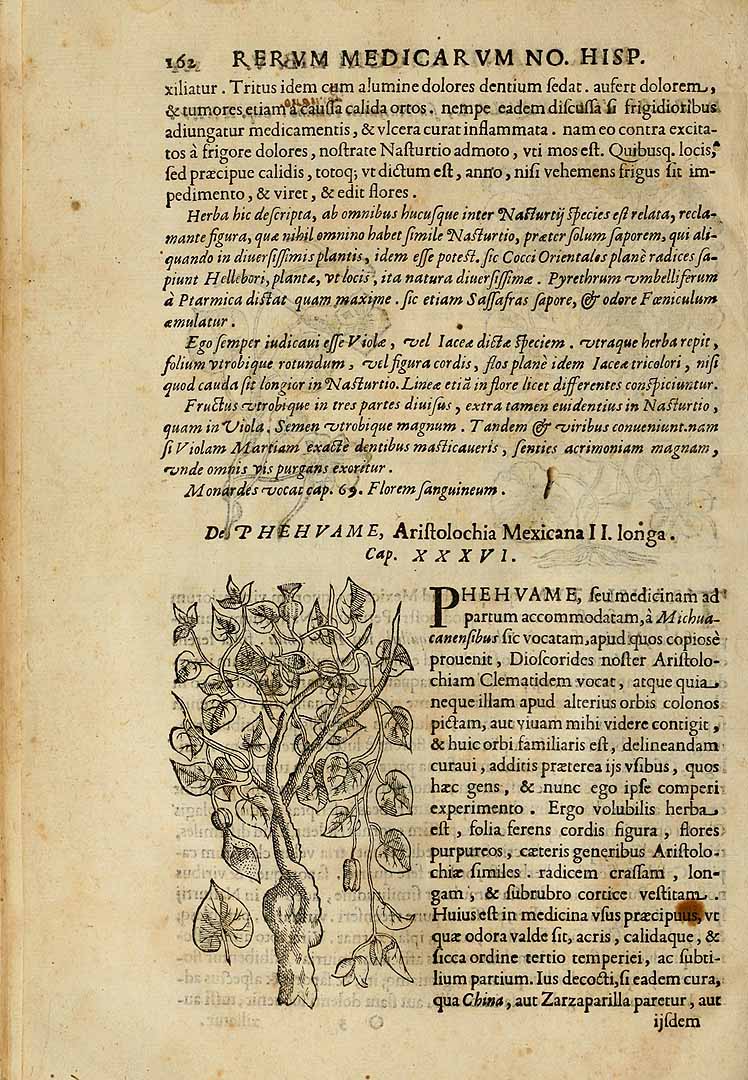 162 RERVM MEDICARVM NO. HISP.
xiliatur. Tritus idem cum alumine dolores dentium ſedat. aufert dolorem,
& tumores etiam à cauſſa calida ortos. nempe eadem diſcuſſa ſi frigidioribus
adiungatur medicamentis, & vlcera curat inflammata. nam eo contra excita-
tos à frigore dolores, noſtrate Naſturtio admoto, vti mos eſt. Quibuſq. locis,
ſed præcipue calidis, totoq; vt dictum eſt, anno, niſi vehemens frigus ſit im-
pedimento, & viret, & edit flores.
Herba hic deſcripta, ab omnibus hucuſque inter Naſturtij ſpecies eſt relata, recla-
mante figura, quæ nihil omnino habet ſimile Naſturtio, præter ſolum ſaporem, qui ali-
quando in diuerſiſſimis plantis, idem eſſe poteſt. ſic Cocci Orientales planè radices ſa-
piunt Hellebori, plantæ, vt locis, ita natura diuerſiſſimæ. Pyrethrum vmbelliferum
à Ptarmica diſtat quam maxime. ſic etiam Saſſafras ſapore, & odore Fœniculum
æmulatur.
Ego ſemper iudicaui eſſe Violæ, vel Iaceæ dictæ ſpeciem. vtraque herba repit,
folium vtrobique rotundum, vel figura cordis, flos planè idem Iaceæ tricolori, niſi
quod cauda ſit longior in Naſturtio. Lineæ etiã in flore licet differentes conſpiciuntur.
Fructus vtrobique in tres partes diuiſus, extra tamen euidentius in Naſturtio,
quam in Viola. Semen vtrobique magnum. Tandem & viribus conueniunt. nam
ſi Violam Martiam exactè dentibus maſticaueris, ſenties acrimoniam magnam,
vnde omnis vis purgans exoritur.
Monardes vocat cap. 69. Florem ſanguineum.
De PHEHVAME, Ariſtolochia Mexicana II. longa.
Cap. XXXVI.
PHEHVAME, ſeu medicinam ad
partum accommodatam, à Michua-
canenſibus ſic vocatam, apud quos copioſè
prouenit, Dioſcorides noſter Ariſtolo-
chiam Clematidem vocat, atque quia
neque illam apud alterius orbis colonos
pictam, aut viuam mihi videre contigit,
& huic orbi familiaris eſt, delineandam
curaui, additis præterea ijs vſibus, quos
hæc gens, & nunc ego ipſe comperi
experimento. Ergo volubilis herba
eſt, folia ferens cordis figura, flores
purpureos, cæteris generibus Ariſtolo-
chiæ ſimiles. radicem craſſam, lon-
gam, & ſubrubro cortice veſtitam.
Huius eſt in medicina vſus præcipuus, vt
quæ odora valde ſit, acris, calidaque, &
ſicca ordine tertio temperiei, ac ſubti-
lium partium. Ius decocti, ſi eadem cura,
qua China, aut Zarzaparilla paretur, aut
ijſdem